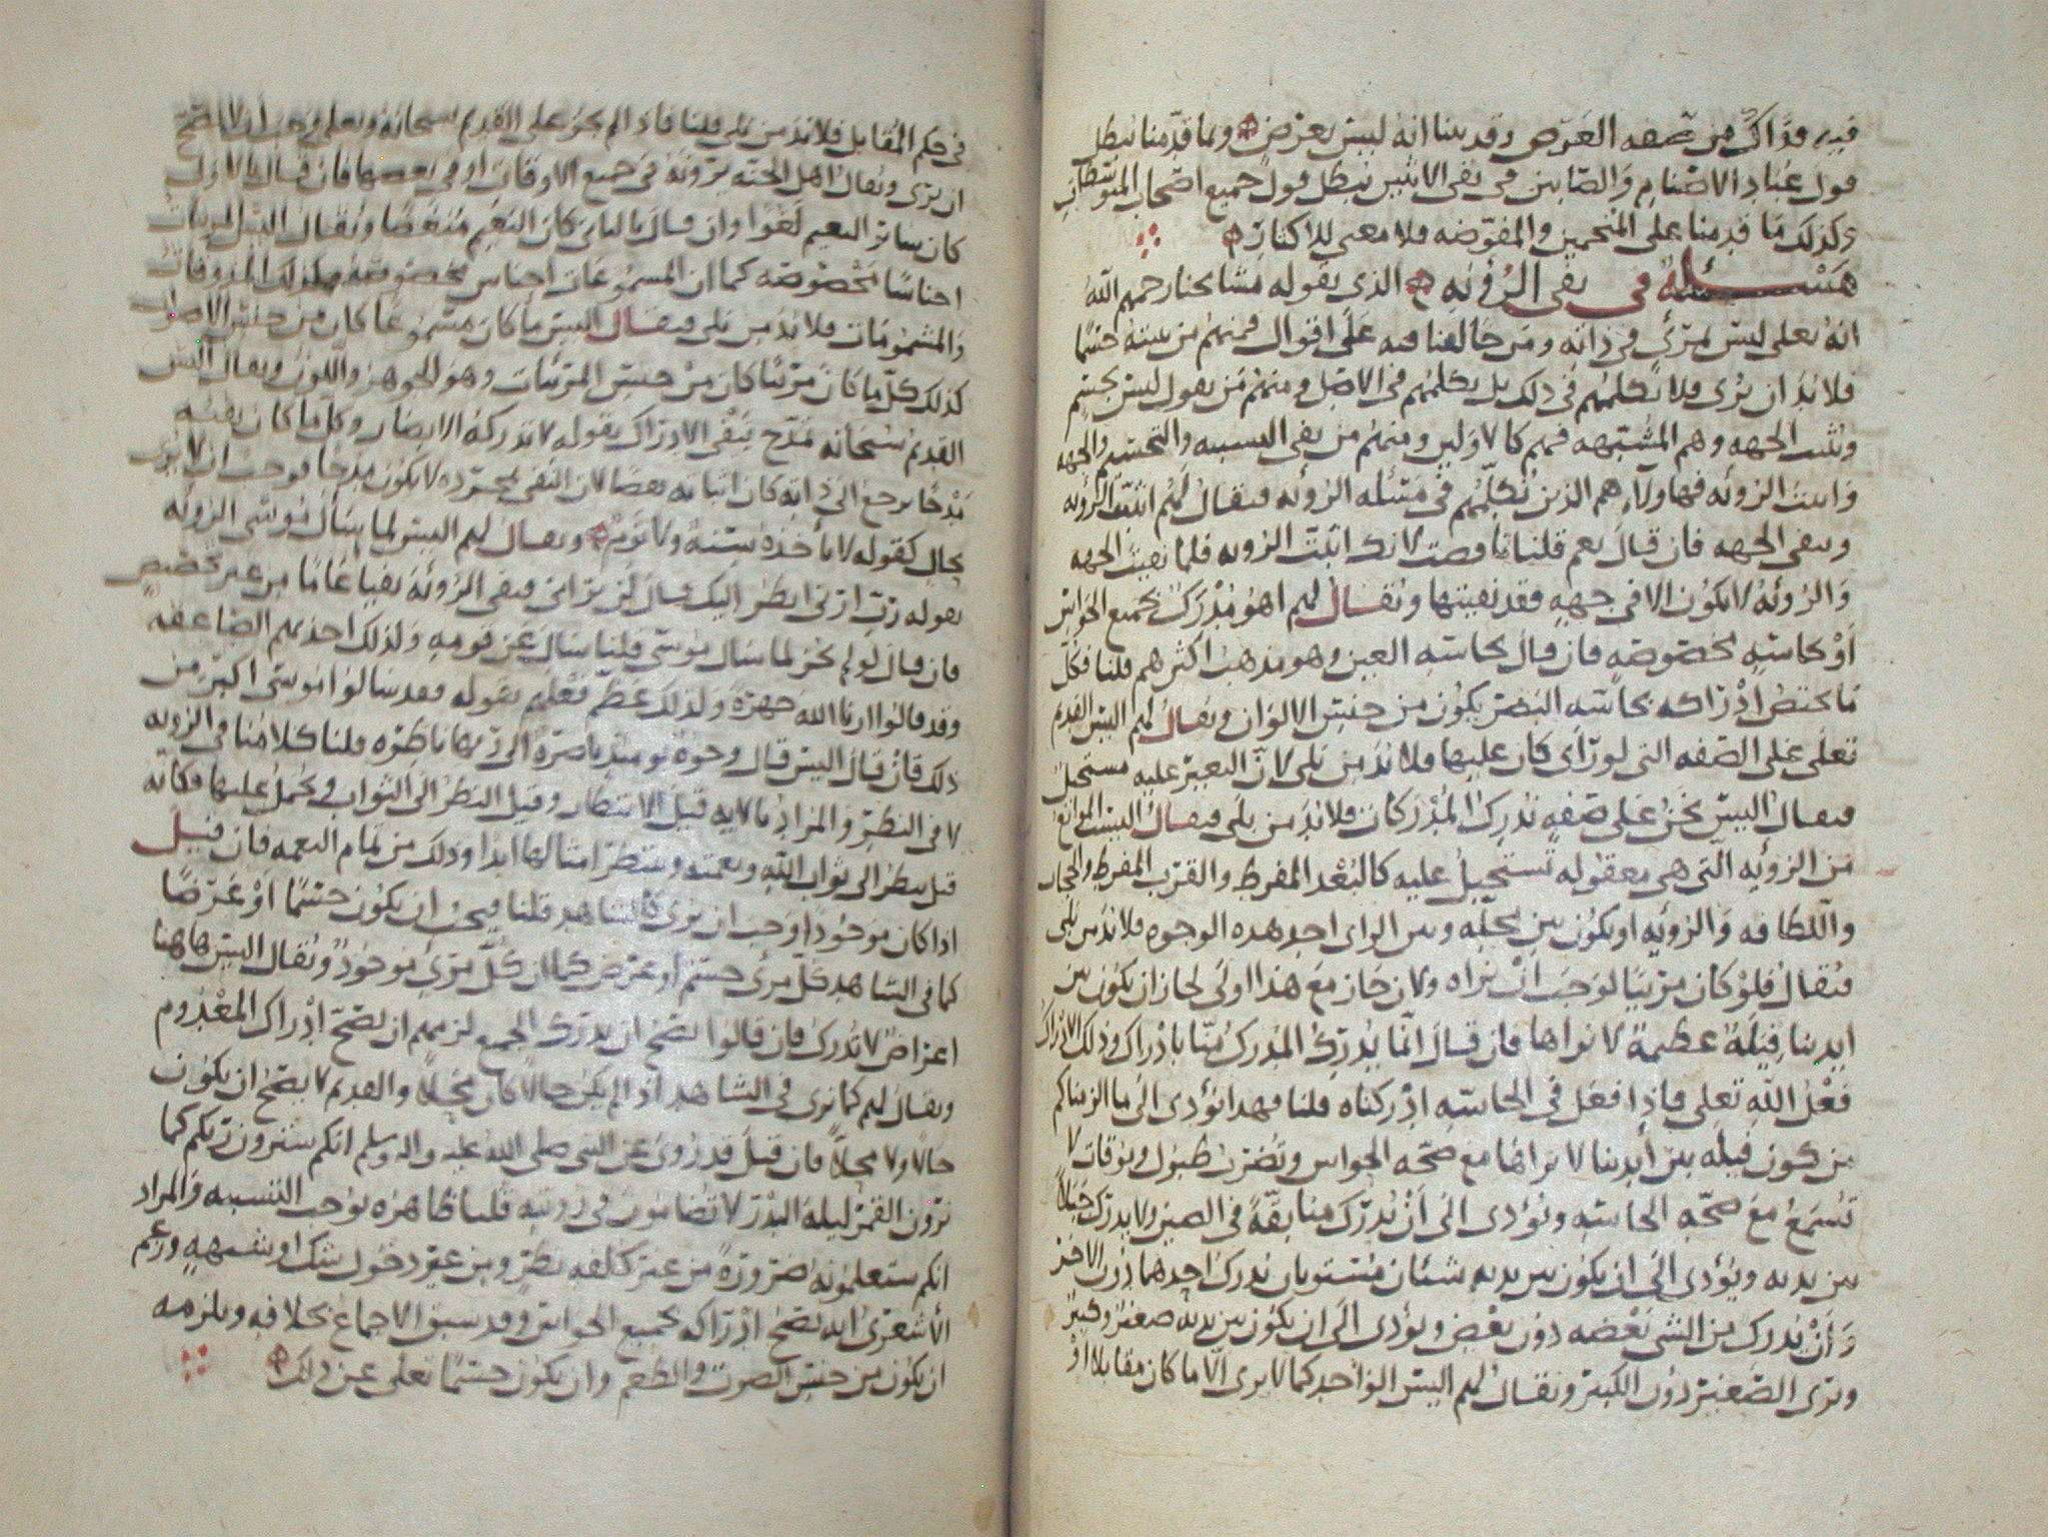 فيه وذاك من صفه العرض وقد بينا انه ليس بعرض وبما قدمنا يبطل
قول عباد الاصنام والصابين في نفي الاثنين يبطل قول جميع اصحاب المتوسطات
وكذلك ما قدمنا على المنجمين والمفوضه فلا معنى للاكثار
مسئلة في نفي الرؤيه الذي يقوله مشايخنا رحمهم الله
انه تعلى ليس بمرئي في ذاته ومن خالفنا فيه على اقوال فمنهم من يثبته جسما
فلا بد ان يرى فلا نكلمهم في ذلك بل نكلمهم في الاصل ومنهم من يقول ليس بجسم
ويثبت الجهه وهم المشبهه فهم كالاولين ومنهم من نفى التشبيه والتجسيم والجهه
واثبت الرؤيه فهاولاء هم الذين نكلمهم في مسئله الرؤيه فيقال لهم اتثبت الرؤيه
وتنفي الجهه فان قال نعم قلنا ناقضت لانك اثبت الرويه فلما نفيت الجهه
والرؤية لا تكون الا في جهه فقد نفيتها ويقال لهم اهو مدرك بجميع الحواس
او بحاسه مخصوصه فان قال بحاسه العين وهو مذهب اكثرهم قلنا فكل
ما يختص ادراكه بحاسه البصر يكون من جنس الالوان ويقال لهم اليس القديم
تعلى على الصفه التي لو رأى كان عليها فلا بد من بلى لان التغيير عليه مستحيل
فيقال اليس نحن على صفه ندرك المدركات فلا بد من بلى فيقال اليست الموانع
من الرؤيه التي هي معقوله تستحيل عليه كالبعد المفرط والقرب المفرط والحجاب
واللطافه والرؤيه او يكون بين محله وبين الراى احد هذه الوجوه فلا بد من بلى
فيقال فلو كان مرئيا لوجب ان نراه ولان جاز مع هذا اولى لجاز ان يكون بين
ايدينا فيلة عظيمة لا نراها فان قال انما يدرك المدرك منا بادراك وذلك الادراك
فعل الله تعلى فاذا فعل في الحاسه ادركناه قلنا فهذا يؤدي الى ما الزمناكم
من كون فيله بين أيدينا لا نراها مع صحه الحواس وتضرب طبول وبوقات لا
تسمع مع صحه الحاسه ويؤدي الى أن يدرك من بقة في الصين ولا يدرك جبلا
بين يديه ويؤدي الى ان يكون بين يديه شيئان مستويان يدرك احدهما دون الاخر
وأن يدرك من الشي بعضه دون بعض ويؤدي الى ان يكون بين يديه صغير وكبير
ويرى الصغير دون الكبير ويقال لهم اليس الواحد كما لا يرى الا ما كان مقابلا او
في حكم المقابل فلا بد من بلى قلنا فاذا لم يجز على القديم سبحانه وتعلى وجب ان لا يصح
ان يرى ويقال اهل الجنه يرونه في جميع الاوقات او في بعضها فان قال بالاول
كان سائر النعيم لغوا وان قال بالثانى كان النعيم منغصا ويقال اليس المرئيات
اجناسا مخصوصه كما ان المسموعات اجناس مخصوصه وكذلك المذوقات
والمشمومات فلا بد من بلى فيقال اليس ما كان مسموعا كان من جنس الاصوات
كذلك كل ما كان مرئيا كان من جنس المرئيات وهو الجوهر واللون ويقال اليس
القديم سبحانه تمدح بنفي الادراك بقوله لا تدركه الابصار وكل ما كان نفيه
مدحا يرجع الى ذاته كان اثباته نقصا لان النفي بمجرده لا يكون مدحا فوجب ان لا يرى
بحال كقوله لا تأخذه سنة ولا نوم ويقال لهم اليس لما سأل موسى الرؤيه
بقوله رب ارني انظر اليك قال لن تراني فنفى الرؤية نفيا عاما من غير تخصيص
فان قال لو لم يجز لما سأل موسى قلنا سأل عن قومه ولذلك اخذتهم الصاعقه
وقد قالوا ارنا الله جهرة ولذلك عظم فعلهم بقوله فقد سالوا موسى اكبر من
ذلك فان قال اليس قال وجوه يومئذ ناضرة الى ربها ناظره قلنا كلامنا في الرويه
لا في النظر والمراد بالايه قيل الانتظار وقيل النظر الى الثواب ويحمل عليها فكأنه
قيل ينظر الى ثواب الله ونعمته وينتظر امثالها ابدا وذلك من تمام النعمه فان قيل
اذا كان موجودا وجب ان يرى كالشاهد قلنا فيجب ان يكون جسما او عرضا
كما في الشاهد كل مرئى جسم او عرض كما ان كل مرئي موجود ويقال اليس هاهنا
اعراض لا تدرك فان قالوا يصح ان يدرك الجميع لزمهم ان يصح ادراك المعدوم
ويقال لهم كما نرى في الشاهد اذا لم يكن حالا كان محلا والقديم لا يصح ان يكون
حالا ولا محلا فان قيل قد روي عن النبي صلى الله عليه واله وسلم انكم سترون ربكم كما
ترون القمر ليلة البدر لا تضامون في رؤيته قلنا ظاهره يوجب التشبيه والمراد
انكم ستعلمونه ضرورة من غير كلفه نظر ومن غير دخول شك او شبهه وزعم
الأشعري انه يصح ادراكه بجميع الحواس وقد سبق الاجماع بخلافه ويلزمه
ان يكون من جنس الصوت والطعم وان يكون جسما تعلى عن ذلك